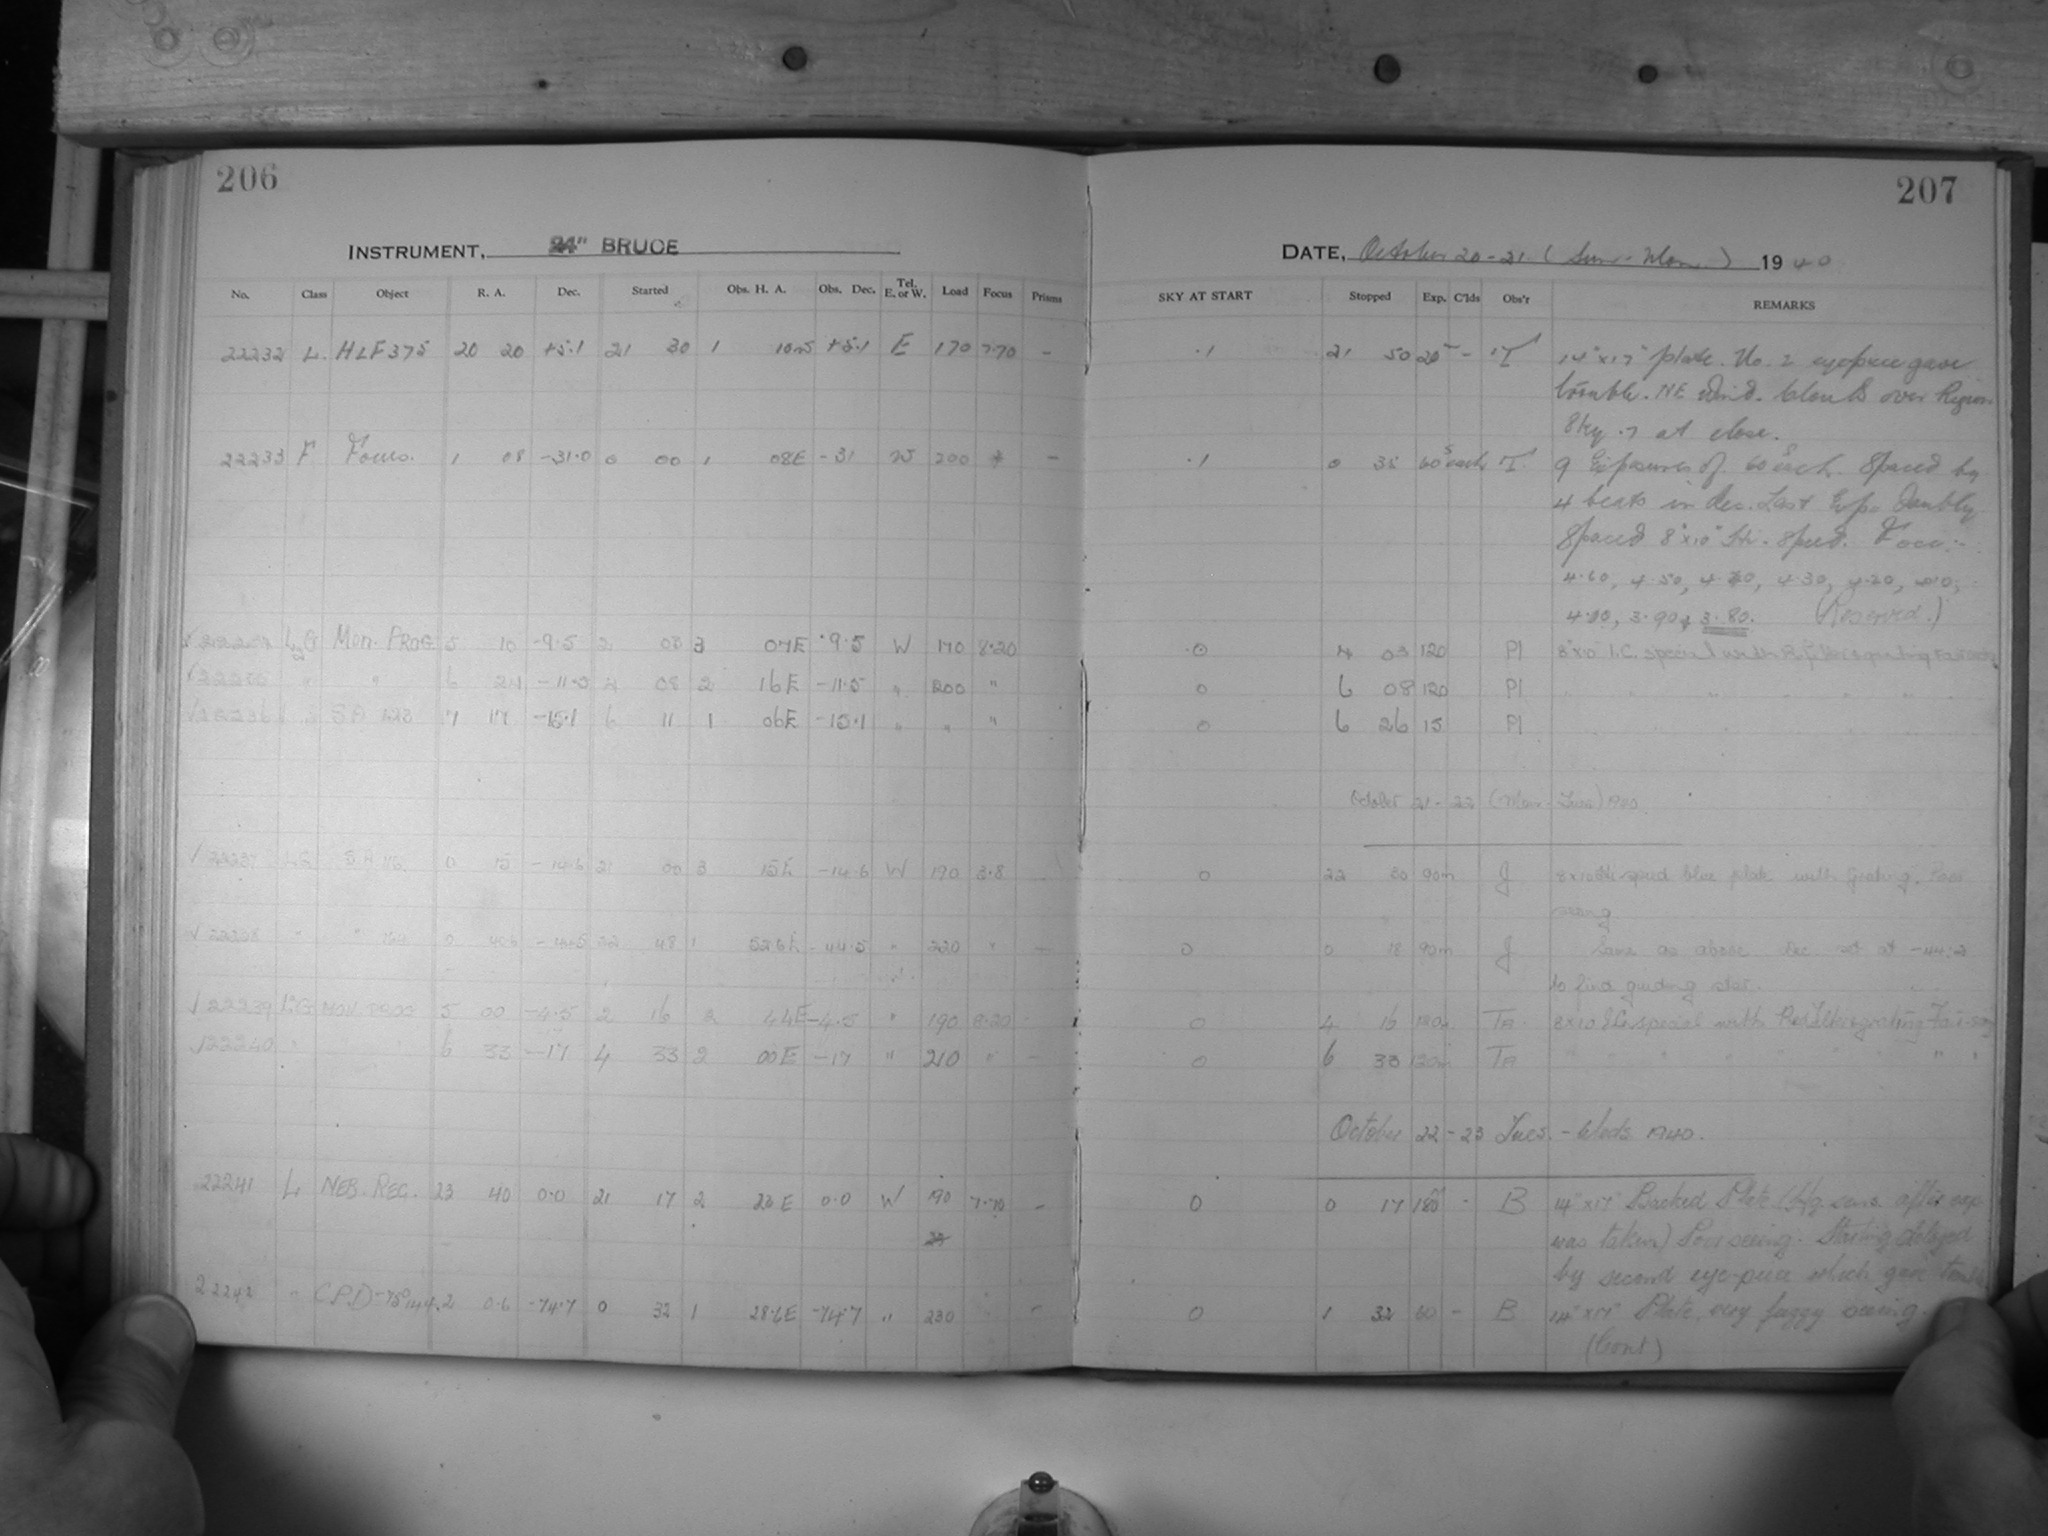 206
207
INSTRUMENT, 24" BRUCE
DATE, October 20-21 (Sun-Mon) 1940
No. Class Object R. A. Dec. Started Obs. H. A. Obs. Dec. Tel. E. or W. Load Focus Prisms
SKY AT START Stopped Exp. C'lds Obs'r REMARKS
22232 L. HLF375 20 20 +5.1 21 30 1 +5.1 E 170 7.70 - .1 21 50 20 - T 14"x17" plate. No. 2 eyepiece gave
trouble. NE Wind. Clouds over Region
Sky .7 at close.
22233 F Focus. 1 08 -31.0 0 00 1 08E -31 W 200 * .1 0 35 60s each T. 9 Exposures of 60s each. Spaced by
4 beats in dec. Last Exp. Doubly
Spaced 8"x10" Hi-Speed. Focus:-
4.60, 4.50, 4.40, 4.30, 4.20,
4.00, 3.90, 3.80. (Reserved.)
Mon. PROG 5 10 -9.5 2 03 3 07E -9.5 W 170 8.20 .0 4 03 120 Pl 8"x10" I.C. special with
" " 6 24 -11.5 4 08 2 16E -11.5 " 200 " 0 6 08 120 Pl
SA 123 7 17 -15.1 6 11 1 06E -15.1 " " " 0 6 26 15 Pl
October 21-22 (Mon-Tues) 1940
√ 22237 LG SA 0 15 -14.6 21 00 3 15E -14.6 W 190 3.8 0 22 30 90m J 8x10 Hi speed blue plate with grating. Poor
seeing
√ 22238 " " 0 48 1 -44.5 " 220 " - 0 0 18 90m J Same as above Dec set at -44.2
to find guiding star.
√ 22239 LG MON PROG 5 00 -4.5 2 16 2 44E -4.5 " 190 8.20 0 4 16 120 TA 8x10 I.C. special with Red filter & grating
√22240 " " 6 33 -17 4 33 2 00E -17 " 210 " - 0 6 33 120m TA " "
October 22-23 Tues. - Weds 1940.
22241 L NEB. REC. 23 40 0.0 21 17 2 23E 0.0 W 190 7.70 - 0 0 17 180 - B 14"x17" Backed Plate (Hg. sens. after exp
was taken) Poor seeing. Starting delayed
by second eye-piece which gave trouble
22242 " C.P.D -75° 2 0.6 -74.7 0 32 1 28.6E -74.7 " 230 - 0 1 32 60 - B 14"x17" Plate, very fuzzy seeing.
(Cont)